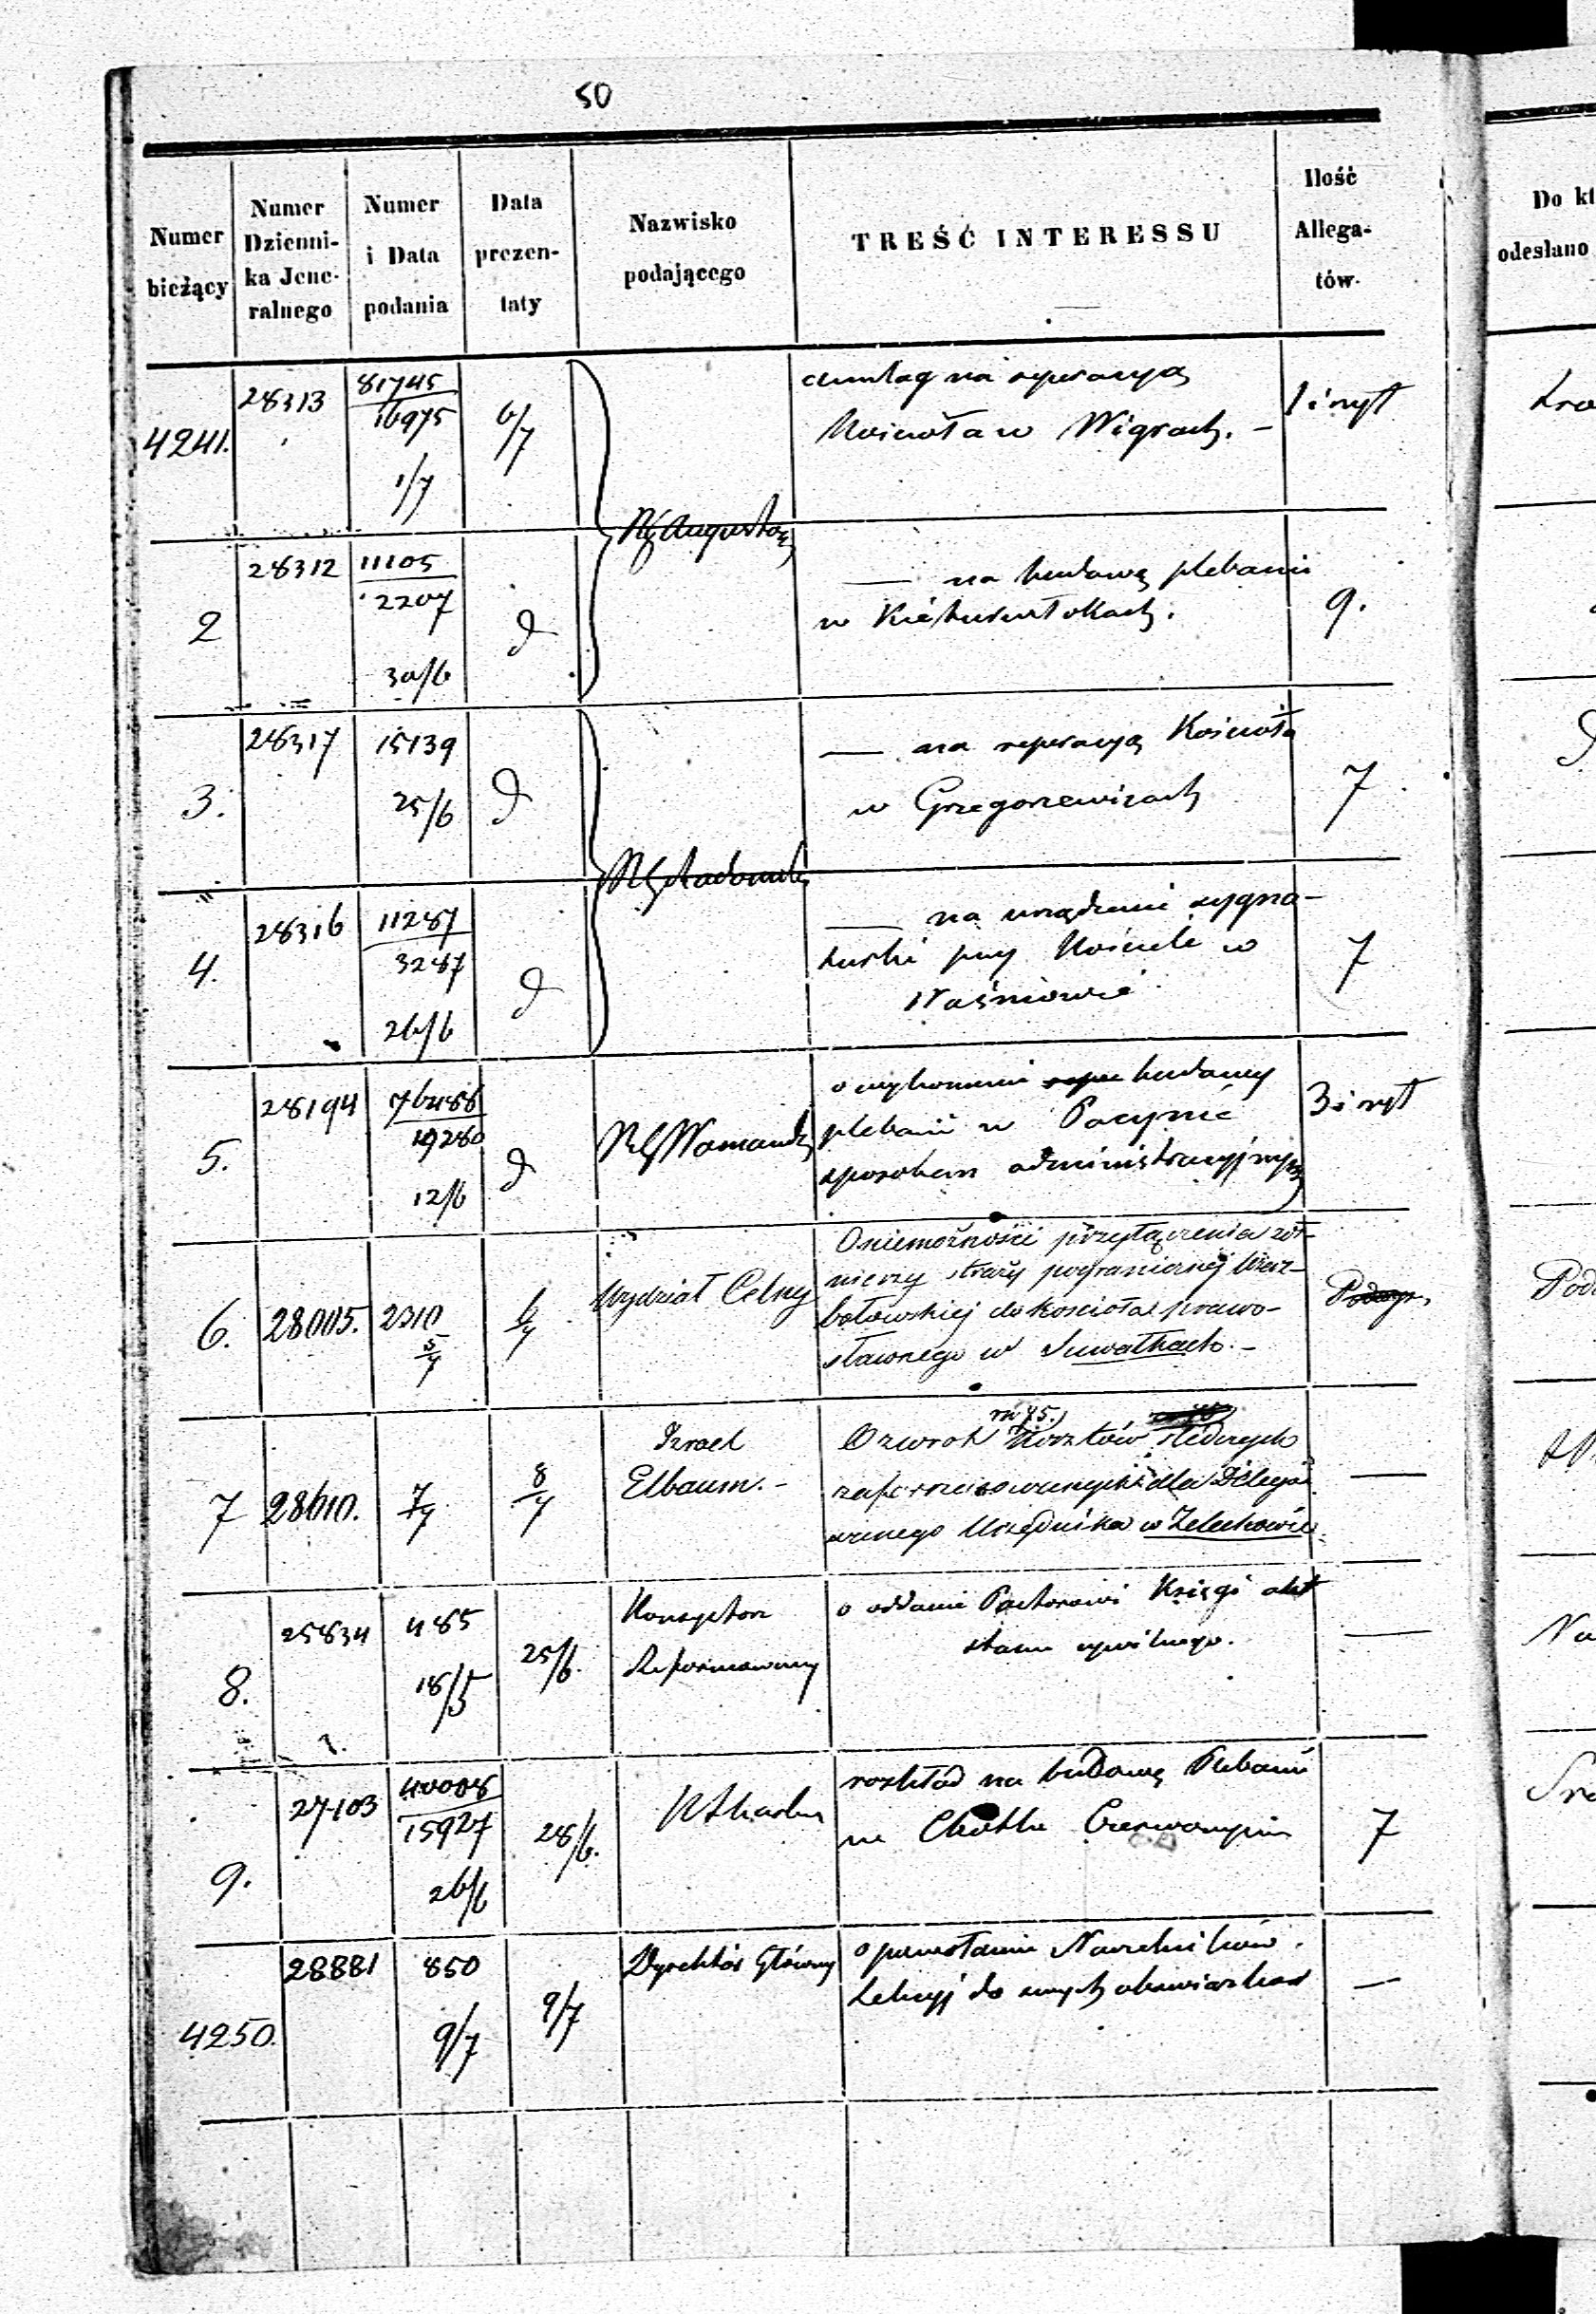 50
Numer bieżący
Numer Dzienni-
ka Jene-
ralnego
Numer i Data podania
Data prezen-
taty
Nazwisko podającego
TREŚĆ INTERESSU
Ilość Allega-
tów.
Do kt
odesłano
4241.
28313
81745
16975
1/7
6/7
Rz Augustow
na reperacyą
Kościoła w Wigrach. –
1 i ryt
2
28312
11105
2207
30/6
d
— na budowę plebanii
w
9.
3.
28317
15139
25/6
d
Rz Radomski
— na reperacyą Kościoła
w Grzegorzewicach
7
4.
28316
11287
3287
26/6
d
— na urządzenie sygna-
turki przy Kościele w
Waśniowie
7
5.
28194
19280
12/6
d
o wykonanie budowy
plebanii w Pacynie
sposobem administracyjnym
3 i ryt
6.
28005.
2310
5/7
6/7
Wydział Celny
O niemożności przyłączenia żoł-
nierzy straży pogranicznej Wierz-
bołowskiej do kościoła prawo-
sławnego w Suwałkach. –
7
28610.
7/7
8/7
Izrael
Elbaum. –
rs 75.
O zwrot Kosztów śledczych
dla Delego-
wanego Urzędnika w Żelechowie.
—
8.
25834
485
18/5
25/6.
Konsystorz
Reformowany
o oddanie Pastorowi Księgi akt
stanu cywilnego.
—
9.
27103
40008
15927
26/6
28/6.
rozkład na budowę Plebanii
w Czerwonym
7
4250.
28881
850
9/7
9/7
Dyrektor Główny
o powołanie Naczelników
Sekcyj do innych obowiązków
—